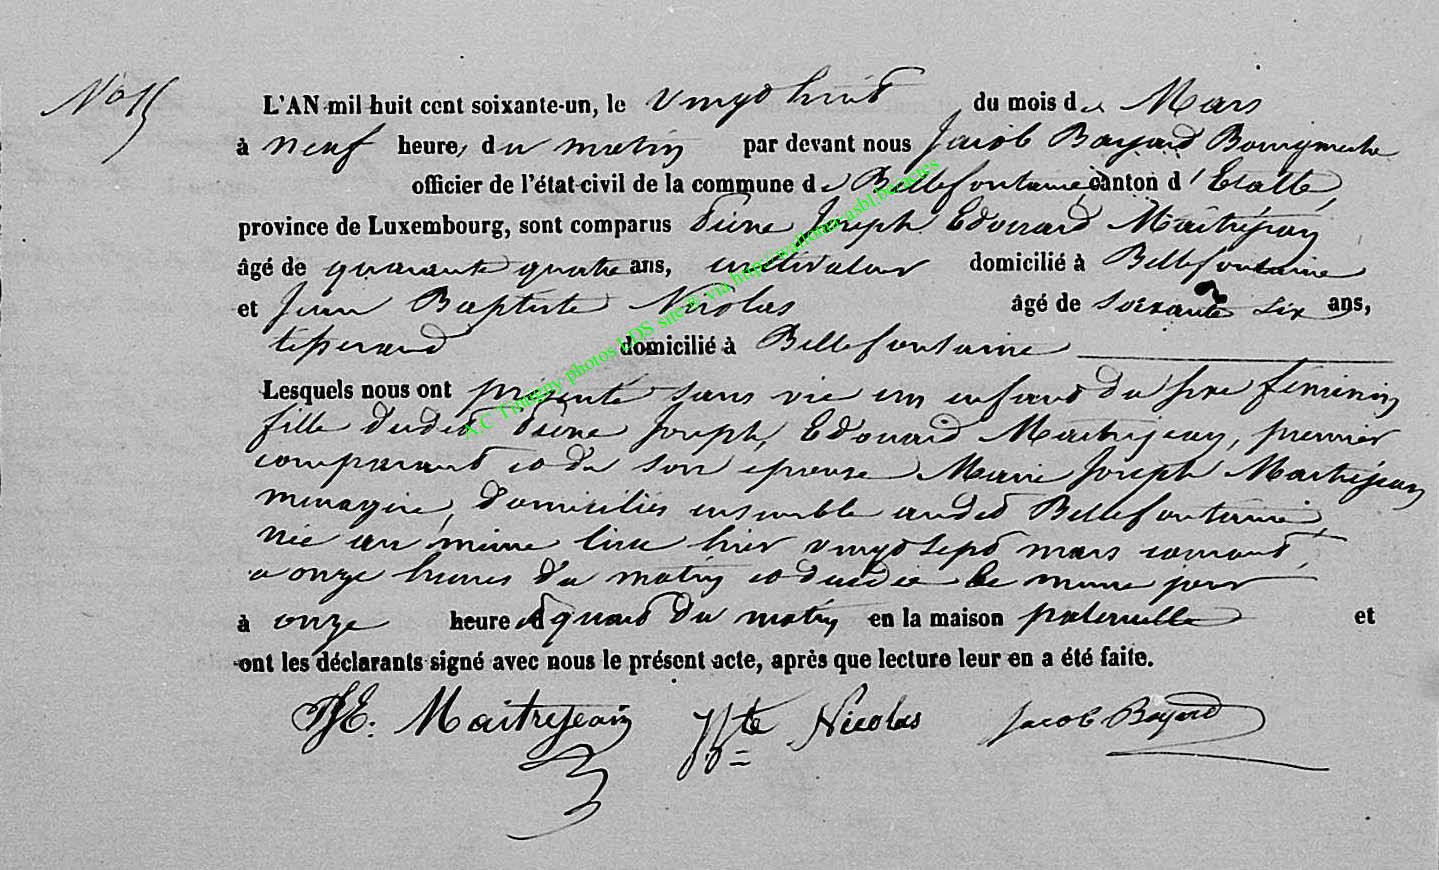 No 15
L'AN mil huit cent soixante-un, le vingt huit du mois de Mars
à neuf heures du matin par devant nous Jacob Bayard Bourgmestre
officier de l'état-civil de la commune de Bellefontaine canton d'Etalle,
province de Luxembourg, sont comparus Pierre Joseph Edouard Maitrejean
âgé de quarante quatre ans, cultivateur domicilié à Bellefontaine
et Jean Baptiste Nicolas âgé de soixante six ans,
tisserand domicilié à Bellefontaine
Lesquels nous ont présenté sans vie un enfant du sexe féminin
fille dudit Pierre Joseph, Edouard Maitrejean, premier
comparant et de son epouse Marie Joseph Maitrejean
menagère, domiciliés ensemble audit Bellefontaine,
née au même lieu hier vingt sept mars courant,
a onze heures du matin et décédée le même jour
à onze heure et quart du matin en la maison paternelle et
ont les déclarants signé avec nous le présent acte, après que lecture leur en a été faite.
PJE. Maitrejean JBte Nicolas Jacob Bayard
A.C Timigny photos LDS site @ via http://wallonia-asbl.be/actes